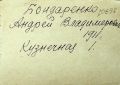 Бондаренко
Андрей Владимирович
Кузнечная 1.